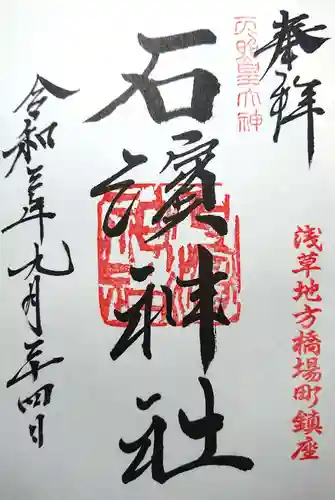 奉拝
浅草地方橋場町鎮座
天照皇大神
石濱神社
令和三年九月二十四日